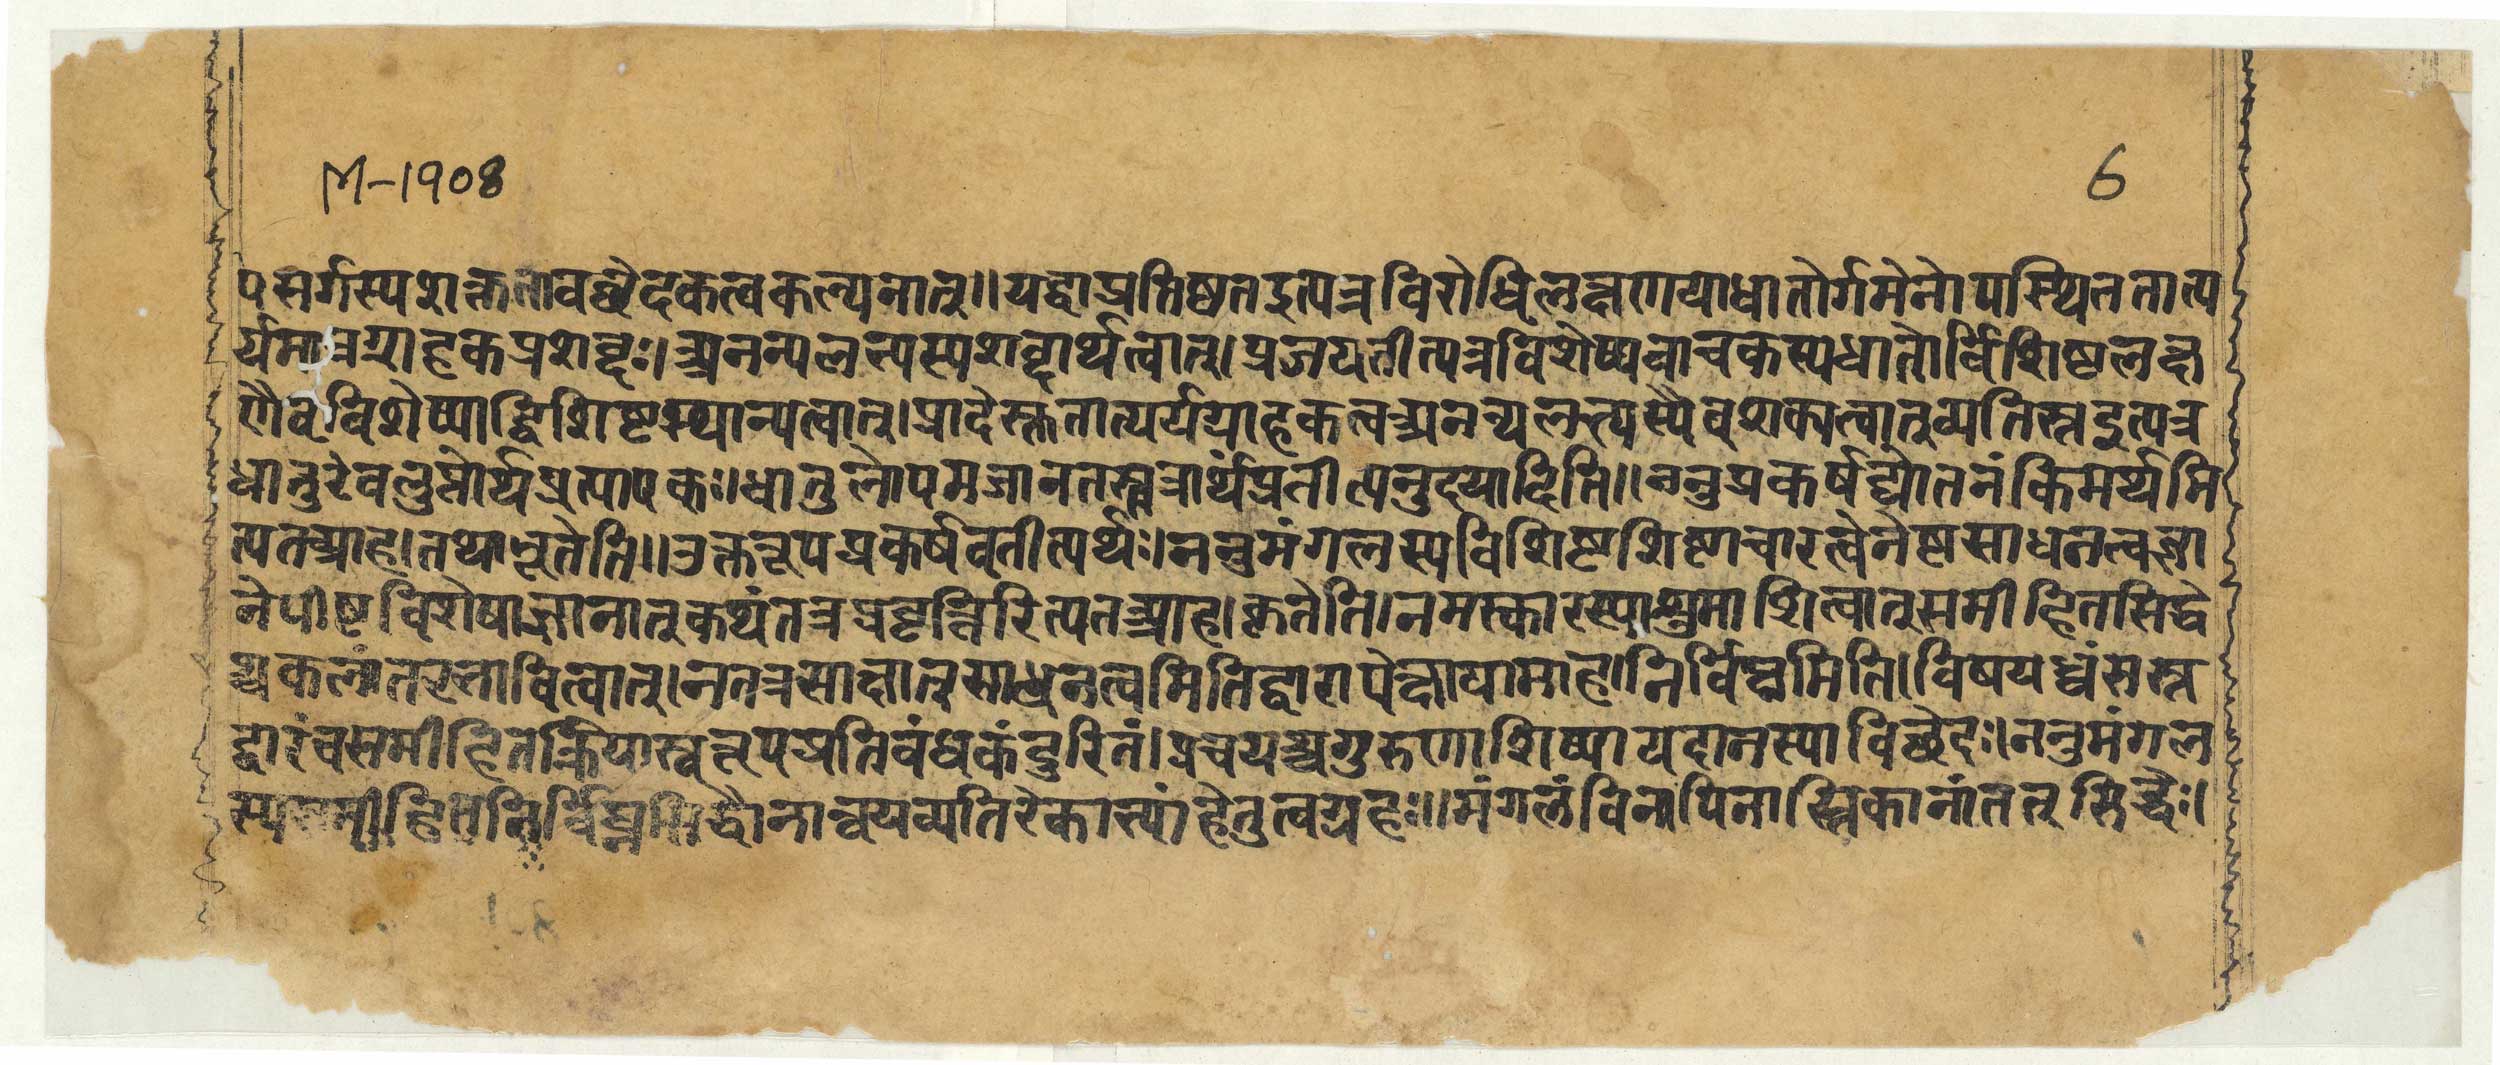 M-1908
6
पसर्गस्यशक्ततावच्छेदकत्वकल्पनात्॥यद्वाप्रतिष्ठतइत्यत्रविरोधिलक्षणयाधातोर्गमेनोपस्थितितात्प
र्यमात्रग्राहकप्रशब्दः।अनन्यलभ्यस्यशब्दार्थत्वात्।प्रजयतीत्यत्रविशेष्यवाचकस्यधातोर्विशिष्टलक्ष
णैवविशेष्याद्विशिष्टस्यान्यत्वात्।प्रादेस्तुतात्पर्यग्राहकत्वअनन्यलभ्यस्यैवशक्यत्वात्व्यतिस्नइत्यत्र
धातुरेवलुप्तोर्थप्रत्यापकः।धातुलोपमजानतस्तत्रार्थप्रतीत्यनुदयादिति॥ननुप्रकर्षद्योतनंकिमर्थमि
त्यतआह।तथाभूतेति॥उक्तरूपप्रकर्षवतीत्यर्थः।ननुमंगलस्यविशिष्टशिष्टाचारत्वेनेष्टसाधनत्वज्ञा
नेपीष्टविशेषाज्ञानात्कथंतत्रप्रवृत्तिरित्यतआह।कृतेति।नमस्कारस्याशुमाशित्वात्समीहितसिद्धे
श्चकलांतरभावित्वात्।नतत्रसाक्षात्साधनत्वमितिद्वारापेक्षायामाह।निर्विघ्नमिति।विषयध्वंसस्त
द्वारंवसमीहितक्रियास्वरूपप्रतिबंधकंदुरितं।प्रचयश्चगुरुणाशिष्यायदानस्याविच्छेदः।ननुमंगल
स्यसमीहितनिर्विघ्नसिद्धौनान्वयव्यतिरेकाभ्यांहेतुत्वग्रहः॥मंगलंविनापिनास्तिकानांतत्सिद्धेः।